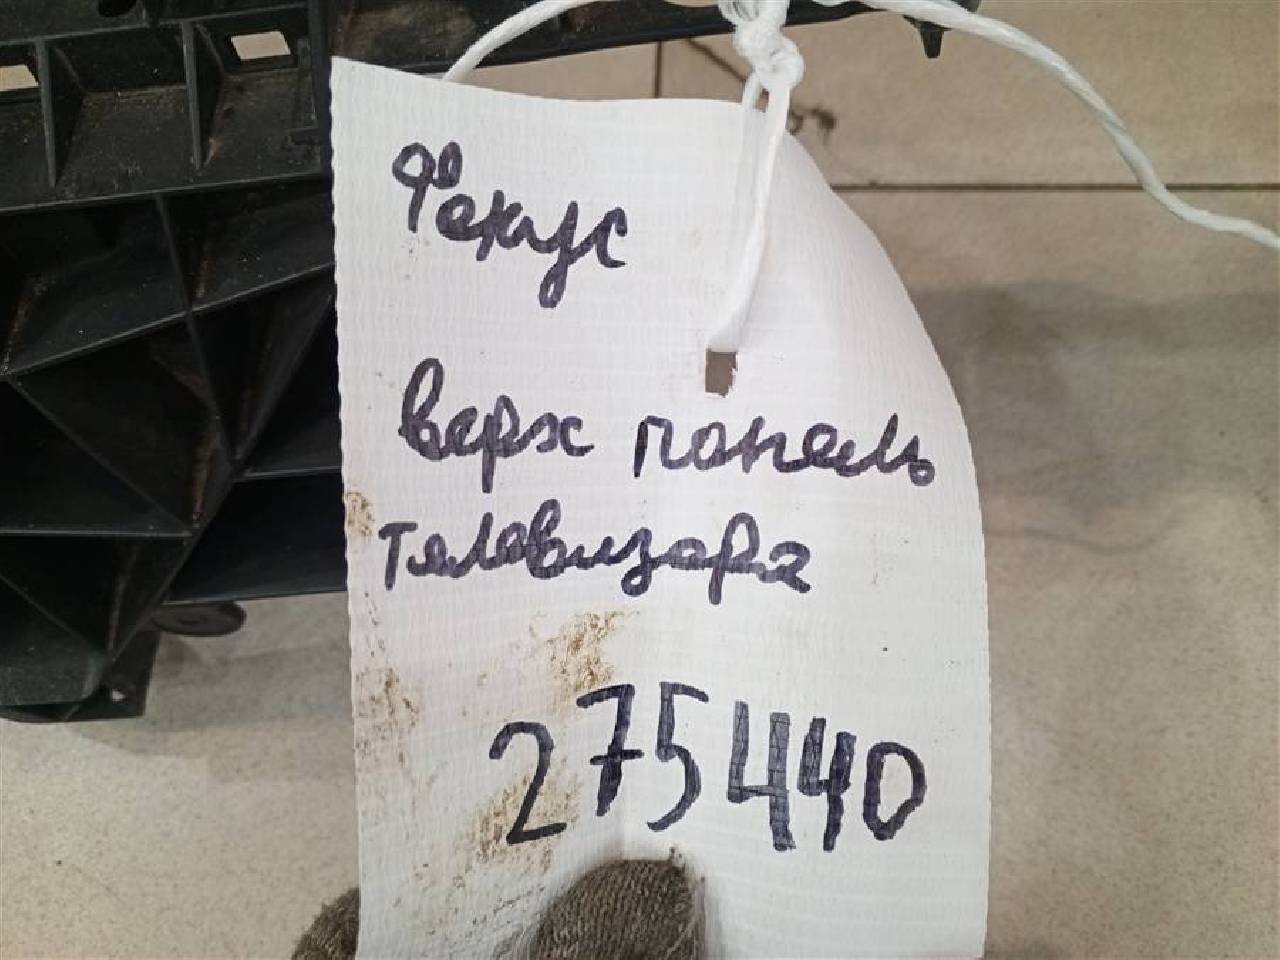 Фокус
верх панель
телевизора
275440